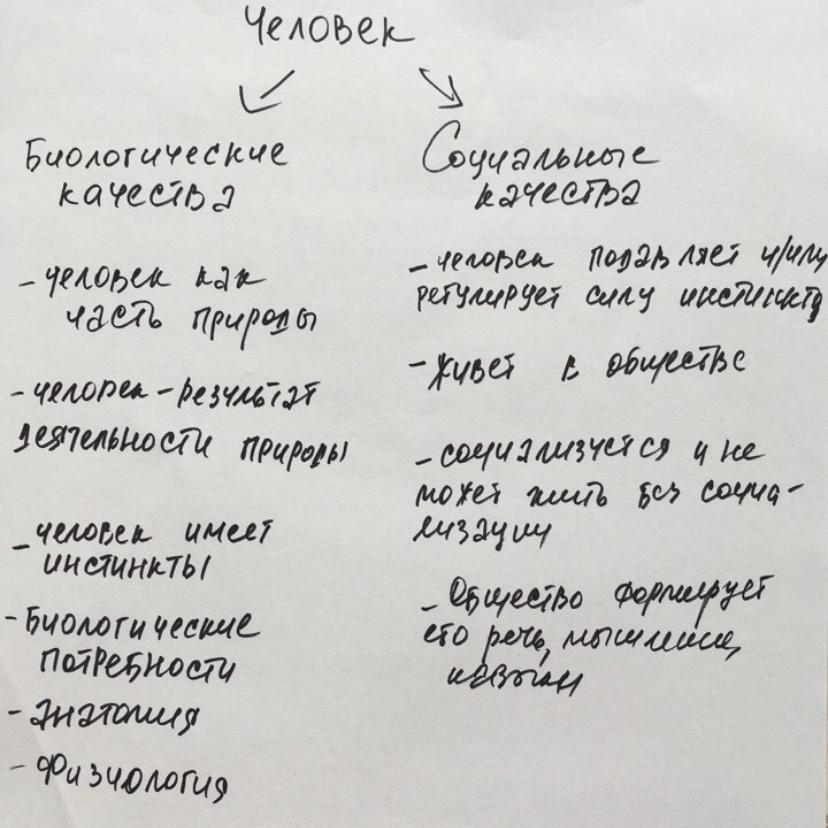 Человек
Биологические
качества
- человек как
часть природы
- человек - результат
деятельности природы
- человек имеет
инстинкты
- Биологические
потребности
- анатомия
- Физиология
Социальные
качества
- человек подавляет и/или
регулирует силу инстинкта
- живет в обществе
- социализуется и не
может жить без социа-
лизации
- Общество формирует
его речь, мышление,
навыки